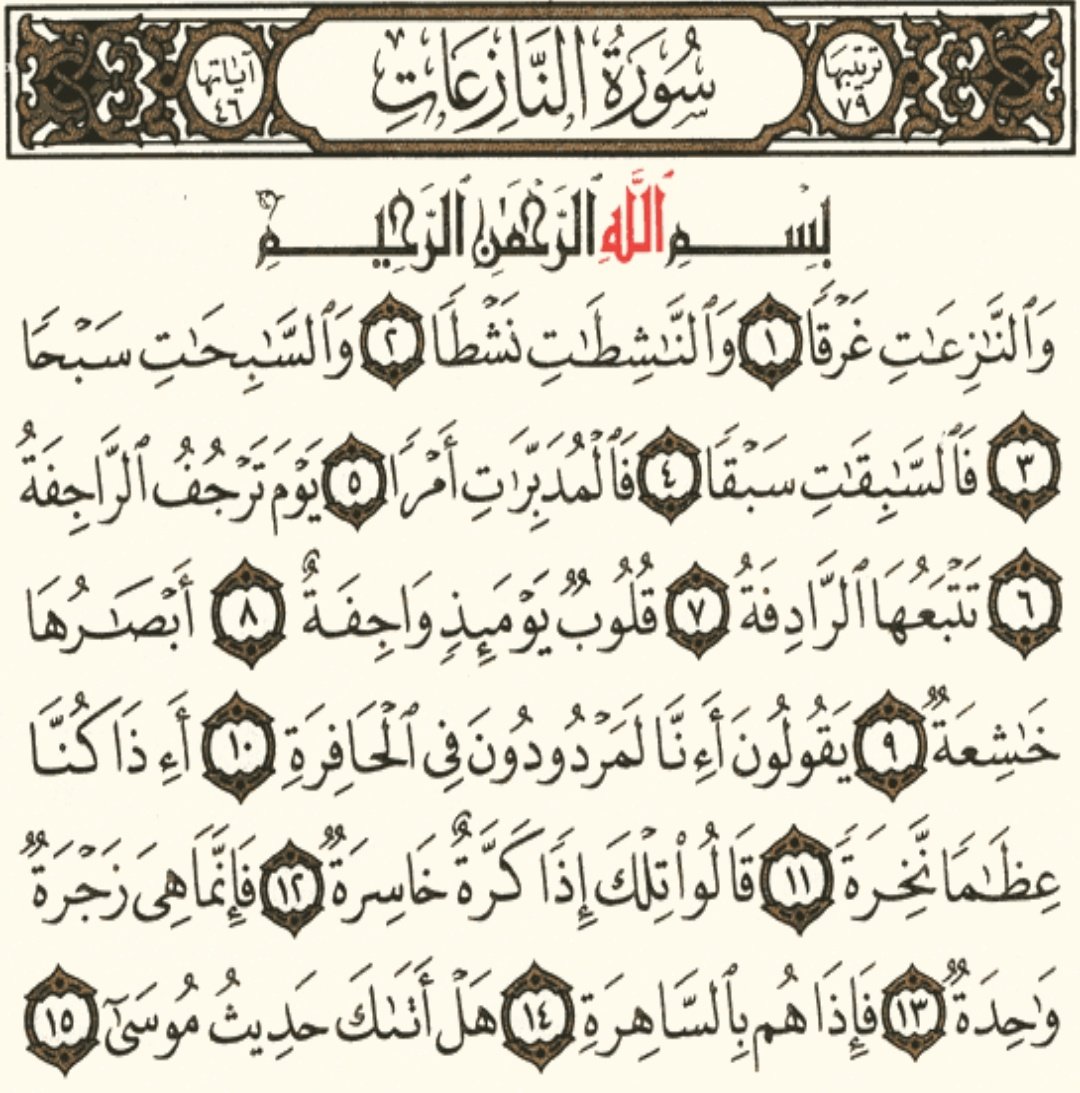 ترتيبها ٧٩ سُورَةُ النَّازِعَاتِ آيَاتها ٤٦
بِسۡمِ ٱللَّهِ ٱلرَّحۡمَٰنِ ٱلرَّحِيمِ
وَٱلنَّٰزِعَٰتِ غَرۡقٗا ١ وَٱلنَّٰشِطَٰتِ نَشۡطٗا ٢ وَٱلسَّٰبِحَٰتِ سَبۡحٗا
٣ فَٱلسَّٰبِقَٰتِ سَبۡقٗا ٤ فَٱلۡمُدَبِّرَٰتِ أَمۡرٗا ٥ يَوۡمَ تَرۡجُفُ ٱلرَّاجِفَةُ
٦ تَتۡبَعُهَا ٱلرَّادِفَةُ ٧ قُلُوبٞ يَوۡمَئِذٖ وَاجِفَةٌ ٨ أَبۡصَٰرُهَا
خَٰشِعَةٞ ٩ يَقُولُونَ أَءِنَّا لَمَرۡدُودُونَ فِي ٱلۡحَافِرَةِ ١٠ أَءِذَا كُنَّا
عِظَٰمٗا نَّخِرَةٗ ١١ قَالُواْ تِلۡكَ إِذٗا كَرَّةٌ خَاسِرَةٞ ١٢ فَإِنَّمَا هِيَ زَجۡرَةٞ
وَٰحِدَةٞ ١٣ فَإِذَا هُم بِٱلسَّاهِرَةِ ١٤ هَلۡ أَتَىٰكَ حَدِيثُ مُوسَىٰٓ ١٥